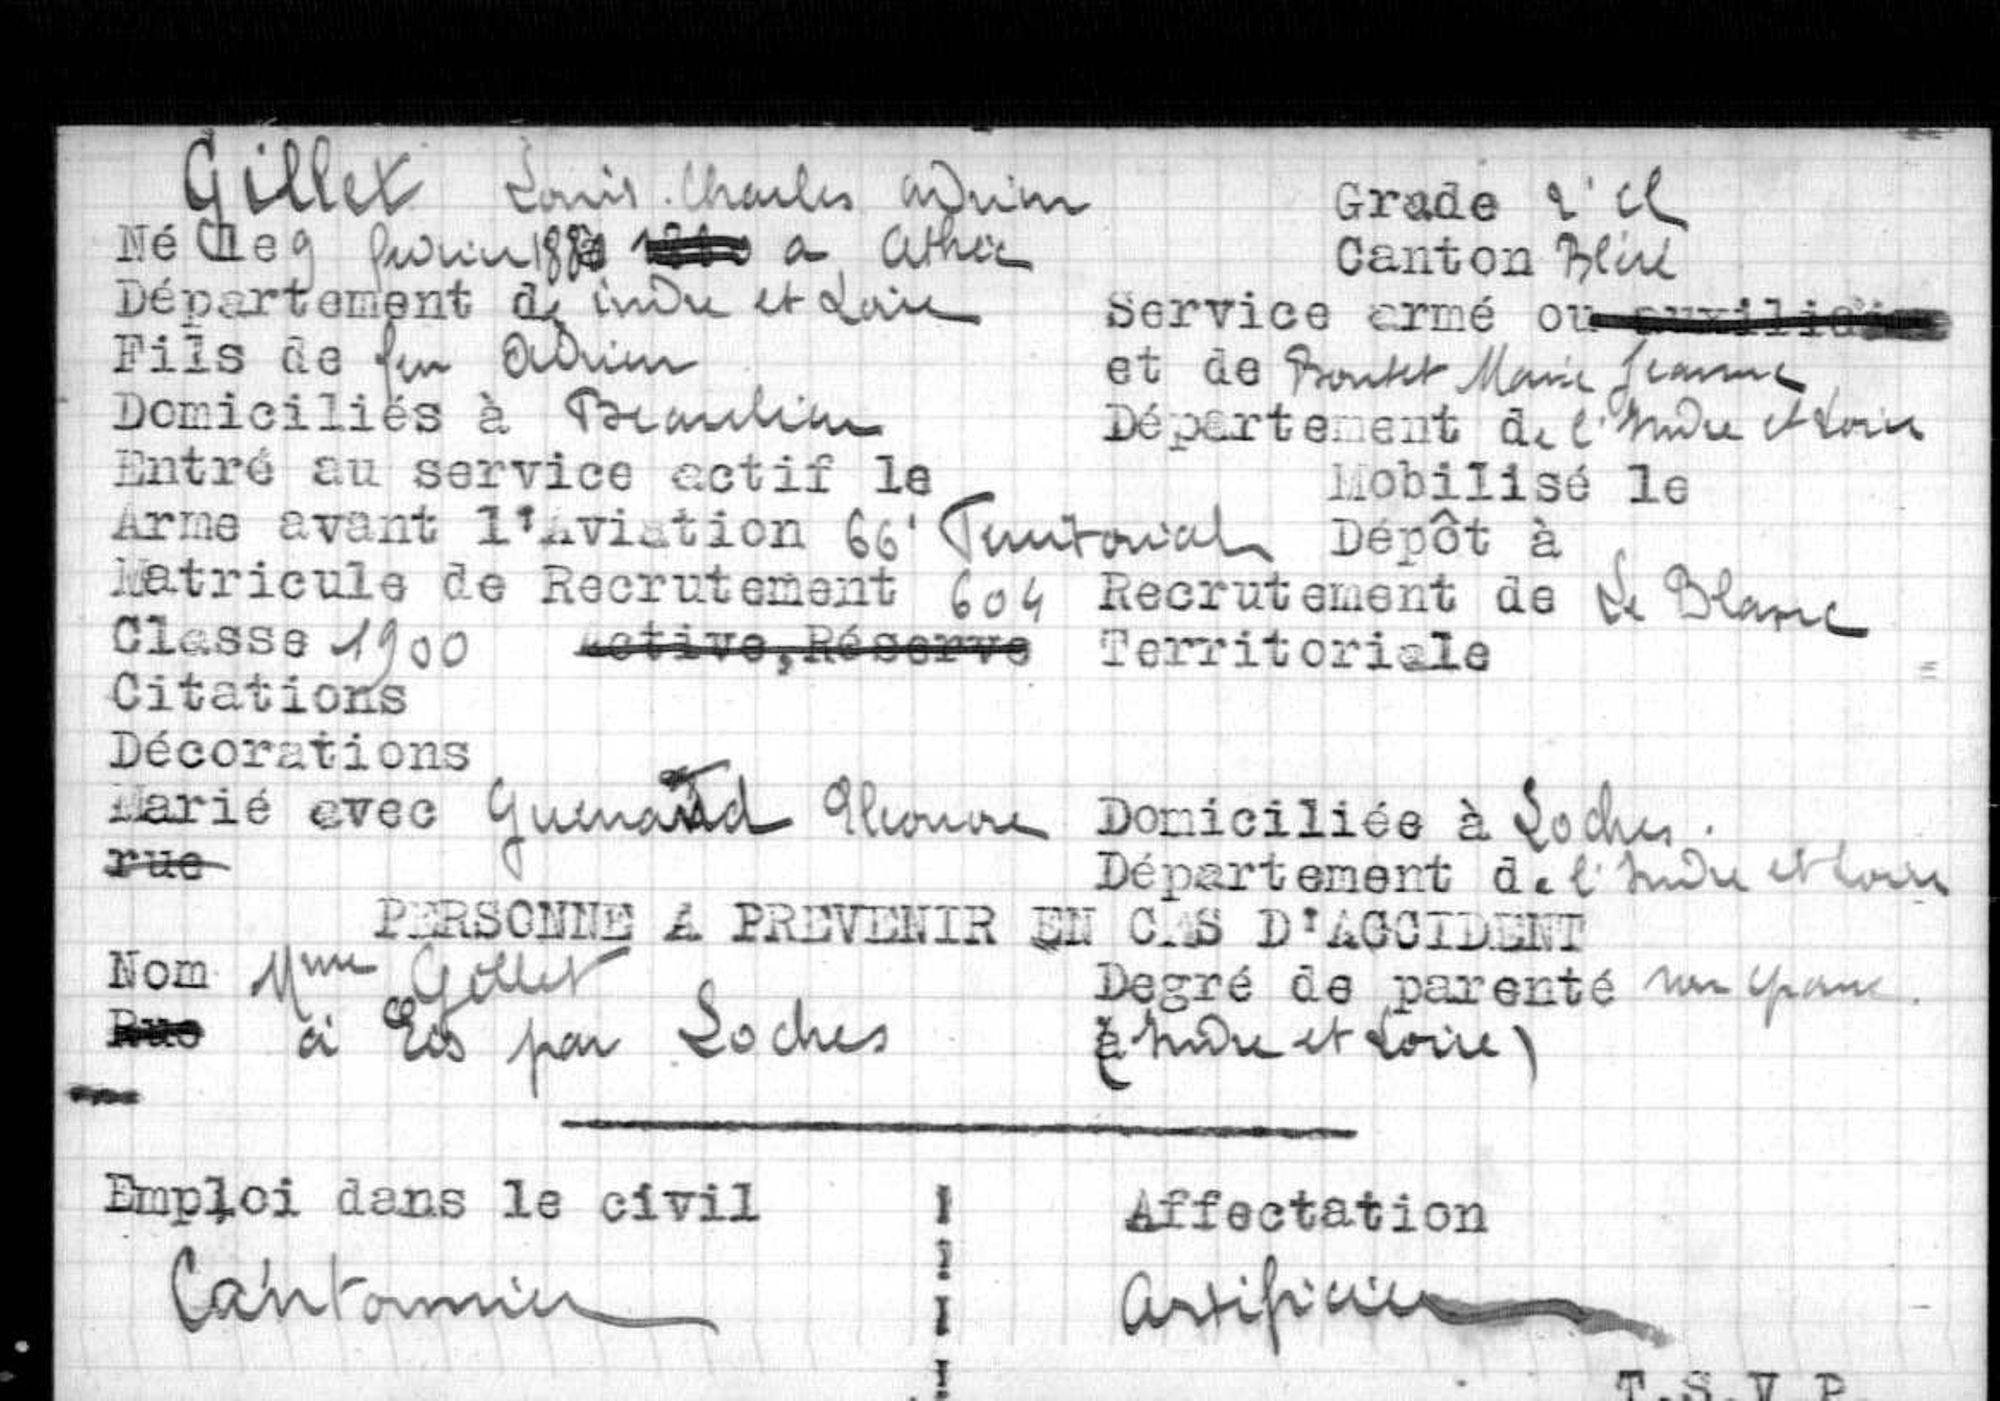 Gillet Louis Charles Adrien Grade 2e cl
Né le 9 février 1880 a Athée Canton Bléré
Département de indre et Loire Service armé ou auxiliaire
Fils de feu Adrien et de Boutet Marie Jeanne
Domiciliés à Beaulieu Département de l'Indre et Loire
Entré au service actif le Mobilisé le
Arme avant l'Aviation 66e Territorial Dépôt à
Matricule de Recrutement 604 Recrutement de Le Blanc
Classe 1900 Active,Réserve Territoriale
Citations
Décorations
Marié avec Guenand Eleonore Domiciliée à Loches.
rue Département de l'Indre et Loire
PERSONNE A PREVENIR EN CAS D'ACCIDENT
Nom Mme Gillet Degré de parenté
Rue à par Loches (Indre et Loire)
Emploi dans le civil ! Affectation
Cantonnier ! Artificier
T.S.V.P.